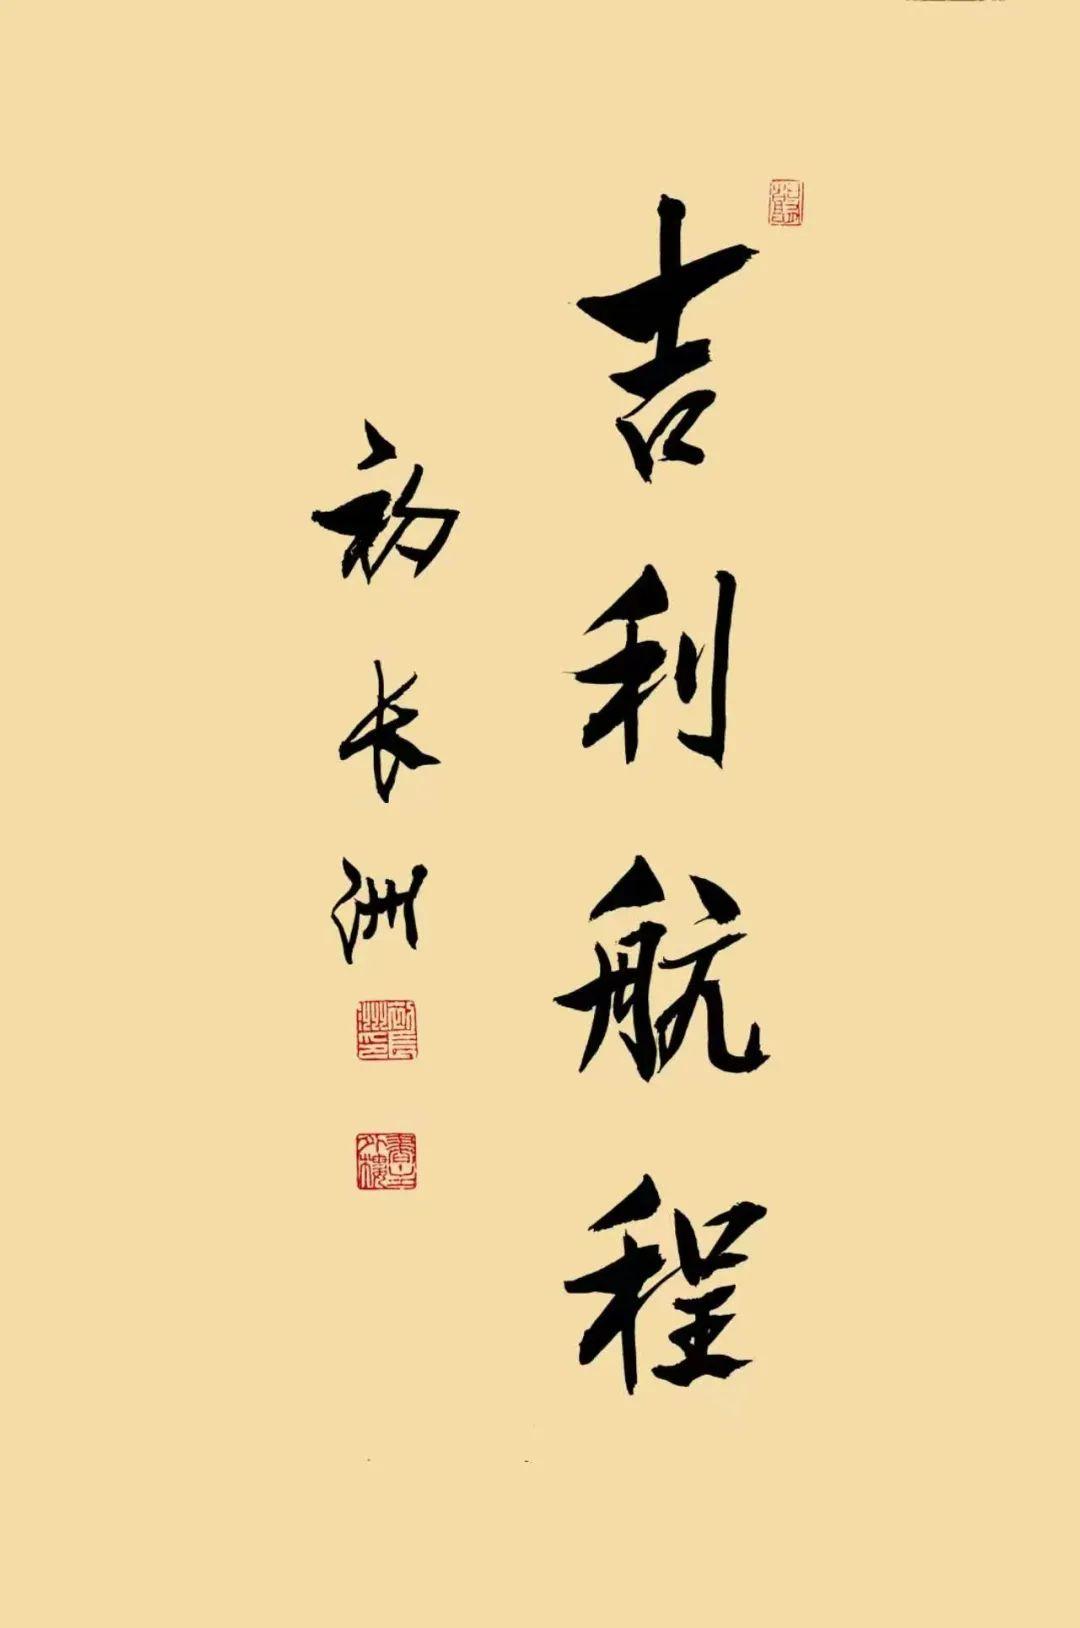 吉利航程
初长洲